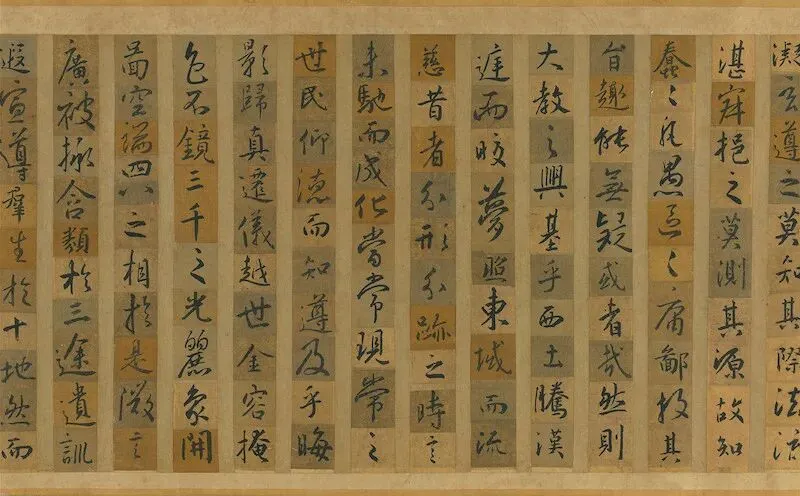 凝玄遵之莫知其際法流
湛寂挹之莫測其源故知
蠢〻凡愚區〻庸鄙投其
旨趣能無疑或者哉然則
大教之興基乎西土騰漢
庭而皎夢照東域而流
慈昔者分形分跡之時言
未馳而成化當常現常之
世民仰德而知遵及乎晦
影歸真遷儀越世金容掩
色不鏡三千之光麗象開
圖空端四八之相於是微言
廣被拯含類於三途遺訓
遐宣導羣生於十地然而